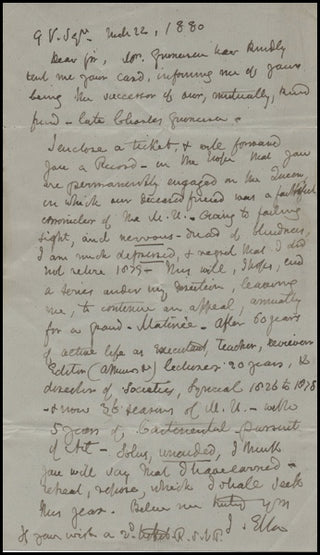 9 V. Sqre March 22, 1880
Dear Sir, Mr. Gruneisen has kindly
sent me your card, informing me of your
being the successor of our, mutually, kind
friend - late Charles Gruneisen.
I enclose a ticket, & will forward
you a Record - in the hope that you
are permanently engaged on the Queen,
in which our deceased friend was a faithful
chronicler of the M.U. - Owing to failing
sight, and nervous - dread of blindness,
I am much depressed, & regret that I did
not retire 1879 - This will, I hope, end
a series under my direction, leaving
me, to continue an appeal, annually
for a grand - Matinée - After 60 years
of active life as Executant, Teacher, reviewer
Editor lecturer 20 years, &
director of Societies, Lyrical 1826 to 1878
- & now 36 seasons of M.U. - with
5 years of Continental pursuit
of Art - Solus, unaided, I think
you will say that I have earned -
retreat, repose, which I shall seek
this year. Believe me truly yrs
If you wish a 2d ticket R.S.V.P. J. Ella